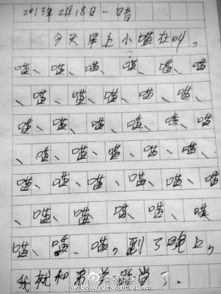 2013年2月18日 一 晴
今天早上小喵在叫，
喵、喵、喵、喵、喵、喵
、喵、喵、喵、喵、喵、
喵、喵、喵、喵、喵、喵
、喵、喵、喵、喵、喵、
喵、喵、喵、喵、喵、喵
、喵、喵、喵、喵、喵、
喵、喵、喵，到了晚上，
我就和 了．